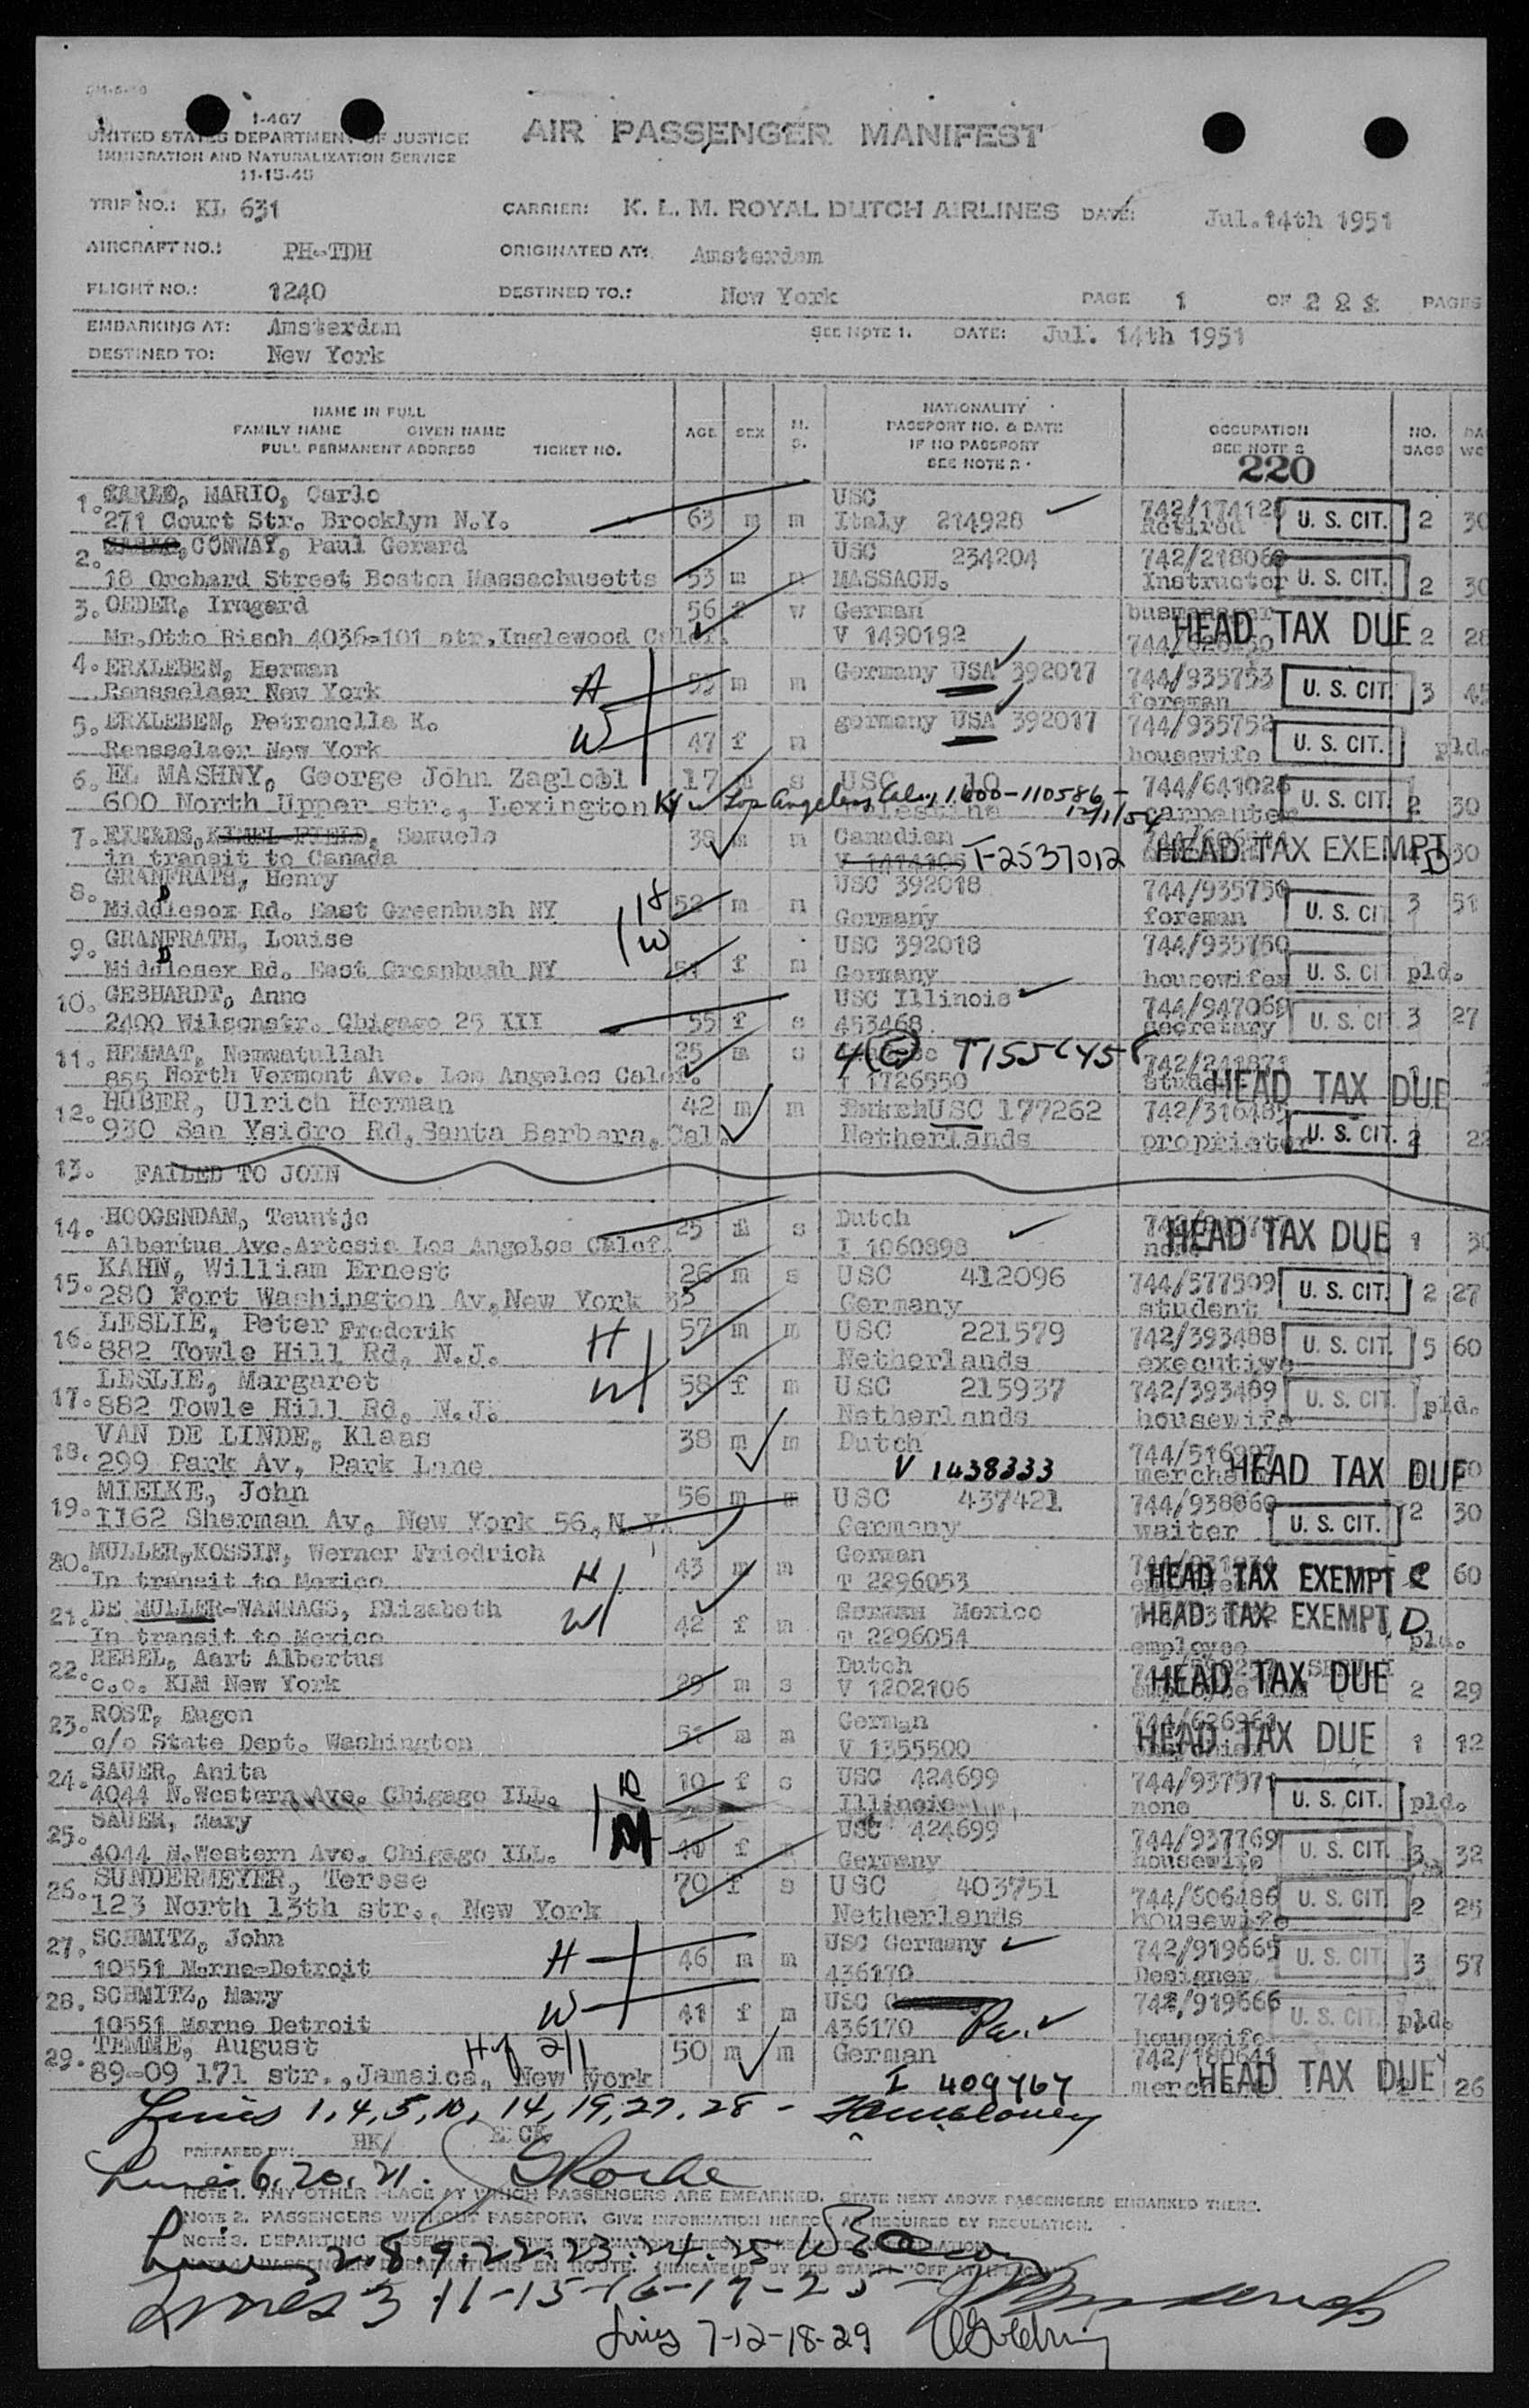 1-467
UNITED STATES DEPARTMENT OF JUSTICE
IMMIGRATION AND NATURALIZATION SERVICE
11-15-45
AIR PASSENGER MANIFEST
TRIP NO.: KL 631 CARRIER: K. L. M. ROYAL DUTCH AIRLINES DATE: Jul.14th 1951
AIRCRAFT NO.: PH-TDH ORIGINATED AT: Amsterdam
FLIGHT NO.: 1240 DESTINED TO.: New York PAGE 1 OF 2 PAGES
EMBARKING AT: Amsterdam SEE NOTE 1. DATE: Jul. 14th 1951
DESTINED TO: New York
NAME IN FULL
FAMILY NAME GIVEN NAME
FULL PERMANENT ADDRESS TICKET NO. AGE SEX M. S. NATIONALITY PASSPORT NO. & DATE IF NO PASSPORT SEE NOTE 2 OCCUPATION SEE NOTE 2 NO. BAGS
220
1. MARIO, Carlo USC 742/17412
271 Court Str. Brooklyn N.Y. 63 m m Italy 214928 Retired U. S. CIT. 2 30
2. CONWAY, Paul Gerard USC 234204 742/21806
18 Orchard Street Boston Massachusetts 53 m m MASSACH. Instructor U. S. CIT. 2 30
3. OEDER, Irmgard 56 f w German HEAD TAX DUE 2 28
Mr.Otto Risch 4036-101 str,Inglewood Calef. V 1490192
4. ERXLEBEN, Herman 55 m m Germany USA 392017 744/935753 U. S. CIT. 3 45
Rensselaer New York foreman
5. ERXLEBEN, Petronella K. germany USA 392017 744/935752
Rensselaer New York W 47 f m housewife U. S. CIT. pld.
6. EL MASHNY, George John Zaglobl 17 m s USC 10 744/641026 U. S. CIT. 2 30
600 North Upper str., Lexington Ky Los Angeles, Cal., 1600-110586 - 12/1/54 Palestine carpenter
7. Samuels 38 m m Canadian HEAD TAX EXEMPT D 30
in transit to Canada T-2537012
8. GRANFRATH, Henry 52 m m USC 392018 744/935750 U. S. CIT 3 51
Middlesex Rd. East Greenbush NY Germany foreman
9. GRANFRATH, Louise W USC 392018 744/935750
Middlesex Rd. East Greenbush NY f m Germany housewife U. S. CI pld.
10. GEBHARDT, Anne USC Illinois 744/947069
2400 Wilsonstr. Chigago 25 III 55 f s 453468 secretary U. S. CI 3 27
11. HEMMAT, Nemmatullah 25 m s 742/241871
855 North Vermont Ave. Los Angeles Calef. I 1726550 student HEAD TAX DUE
12. HUBER, Ulrich Herman 42 m m USC 177262 742/316485
930 San Ysidro Rd,Santa Barbara,Cal. Netherlands proprietor U. S. CIT. 2 22
13. FAILED TO JOIN
14. HOOGENDAM, Teuntje 25 m s Dutch HEAD TAX DUE 1 30
Albertus Ave.Artesia Los Angeles Calef. I 1060898
15. KAHN, William Ernest 26 m s USC 412096 744/577509 U. S. CIT. 2 27
280 Fort Washington Av,New York 32 Germany student
16. LESLIE, Peter Frederik H 57 m m USC 221579 742/393488 U. S. CIT. 5 60
882 Towle Hill Rd, N.J. Netherlands executive
17. LESLIE, Margaret W 58 f m USC 215937 742/393489 U. S. CIT. pld.
882 Towle Hill Rd, N.J. Netherlands housewife
18. VAN DE LINDE, Klaas 38 m m Dutch
299 Park Av, Park Lane V 1438333 HEAD TAX DUE
19. MIELKE, John 56 m m USC 437421 744/938060 2 30
1162 Sherman Av, New York 56,N.Y. Germany waiter U. S. CIT.
20. MULLER,KOSSIN, Werner Friedrich H 43 m m German HEAD TAX EXEMPT C 60
In transit to Mexico T 2296053
21. DE MULLER-WANNAGS, Elizabeth W 42 f m Mexico HEAD TAX EXEMPT D
In transit to Mexico T 2296054 employee pld.
22. REBEL, Aart Albertus 29 m s Dutch HEAD TAX DUE 2 29
c.o. KLM New York V 1202106
23. ROST, Eugen 51 m m German HEAD TAX DUE 1 12
c/o State Dept. Washington V 1355500
24. SAUER, Anita 10 f s USC 424699 744/937971
4044 N.Western Ave. Chigago ILL. Illinois none U. S. CIT. pld.
25. SAUER, Mary USC 424699 744/937769
4044 N.Western Ave. Chigago ILL. f Germany housewife U. S. CIT. 3 32
26. SUNDERMEYER, Terese 70 f s USC 403751 744/606486
123 North 13th str., New York Netherlands housewife U. S. CIT. 2 25
27. SCHMITZ, John H 46 m m USC Germany 742/919665
10551 Marne-Detroit 436170 Designer U. S. CIT. 3 57
28. SCHMITZ, Mary W 41 f m USC 742/919666
10551 Marne Detroit 436170 Pa. housewife U. S. CIT. pld.
29. TEMME, August 50 m m German 742/180641
89-09 171 str.,Jamaica, New York I 409767 merchant HEAD TAX DUE 26
Lines 1,4,5,10, 14,19,27,28 -
PREPARED BY: HK/
Lines 6.20.21.
NOTE 1. ANY OTHER PLACE AT WHICH PASSENGERS ARE EMBARKED. STATE NEXT ABOVE PASSENGERS EMBARKED THERE.
NOTE 2. PASSENGERS WITHOUT PASSPORT. GIVE INFORMATION HEREON AS REQUIRED BY REGULATION.
NOTE 3. DEPARTING PASSENGERS.
Lines 2.8.9.22.23.24.25
Lines 3.11-15-16-17-25-
Lines 7-12-18-29